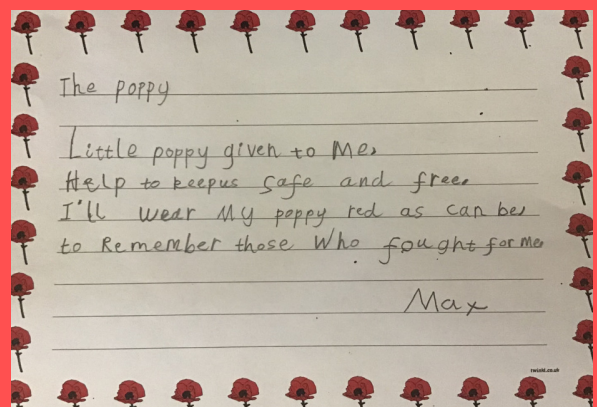 The poppy
Little poppy given to Me,
Help to keepus safe and free.
I'll wear My poppy red as can be,
to Remember those Who fought for Me.
Max
twinkl.co.uk